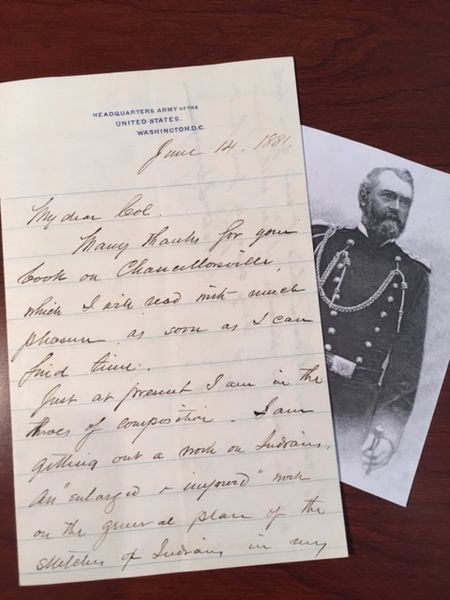 HEADQUARTERS ARMY OF THE
UNITED STATES.
WASHINGTON, D.C.
June 14. 1881.
My dear Col.
Many thanks for your
book on Chancellorsville,
which I will read with much
pleasure, as soon as I can
find time.
Just at present I am in the
throes of composition. I am
getting out a work on Indians.
An "enlarged & improved" work
on the general plan of the
sketches of Indians in my